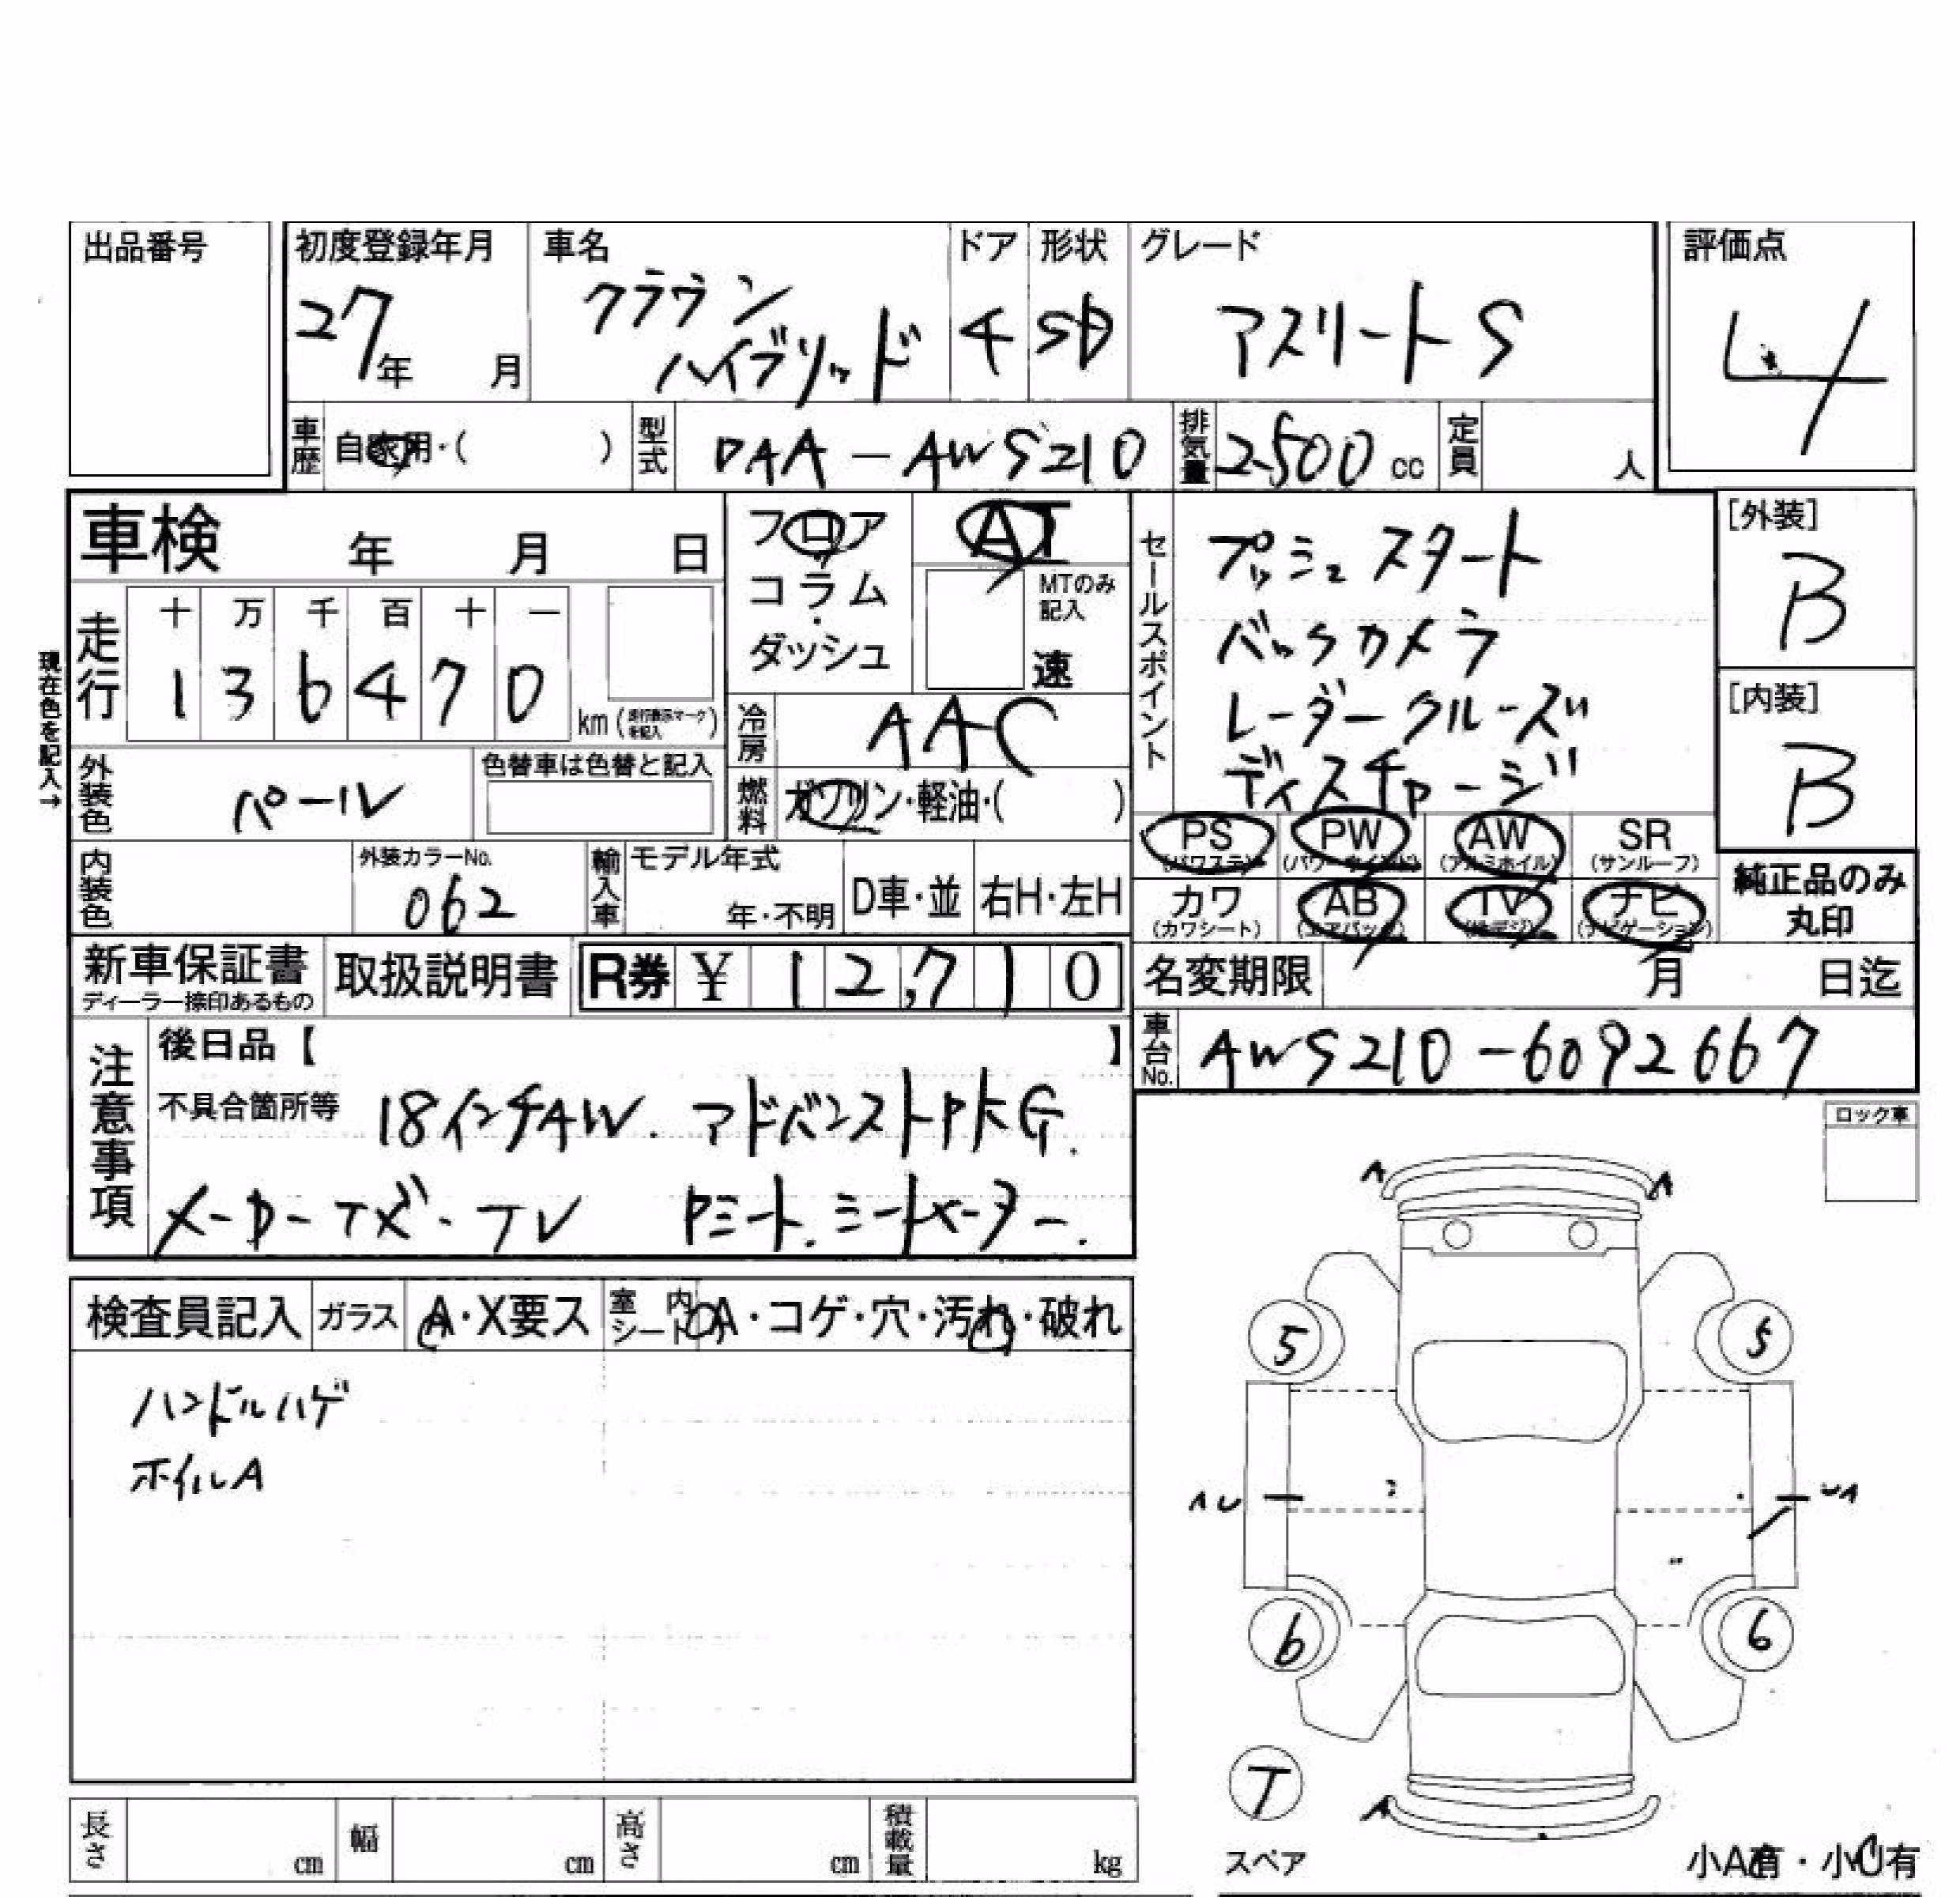 出品番号
初度登録年月 車名 ドア 形状 グレード 評価点
27年 月 クラウン ハイブリッド 4 SD アスリートS 4
車歴 自家用・( ) 型式 DAA-AWS210 排気量 2500cc 定員 人
車検 年 月 日
フロア・コラム・ダッシュ
AT
MTのみ記入
速
セールスポイント
プッシュスタート
バックカメラ
レーダークルーズ
ディスチャージ
[外装]
B
[内装]
B
現在色を記入→
走行 十 万 千 百 十 一
1 3 6 4 7 0 km
冷房 AAC
外装色 パール 色替車は色替と記入
燃料 ガソリン・軽油・( )
PS PW AW SR
(パワステ) (パワーウインド) (アルミホイル) (サンルーフ)
カワ AB TV ナビ
(カワシート) (エアバック) (地デジ) (ナビゲーション)
純正品のみ
丸印
内装色 外装カラーNo. 062 輸入車 モデル年式 年・不明 D車・並 右H・左H
新車保証書 取扱説明書 R券 ¥ 12,710
ディーラー捺印あるもの
名変期限 月 日迄
車台No. AWS210-6092667
注意事項
後日品【 】
不具合箇所等 18インチAW. アドバンストPKG.
メーカーナビ・TV Pシート.シートヒーター.
ロック車
検査員記入 ガラス A・X要ス 室内シート A・コゲ・穴・汚れ・破れ
ハンドルハゲ
ホイルA
A A
5 5
AU UA
6 6
T
スペア
A
小A有・小U有
長さ cm 幅 cm 高さ cm 積載量 kg